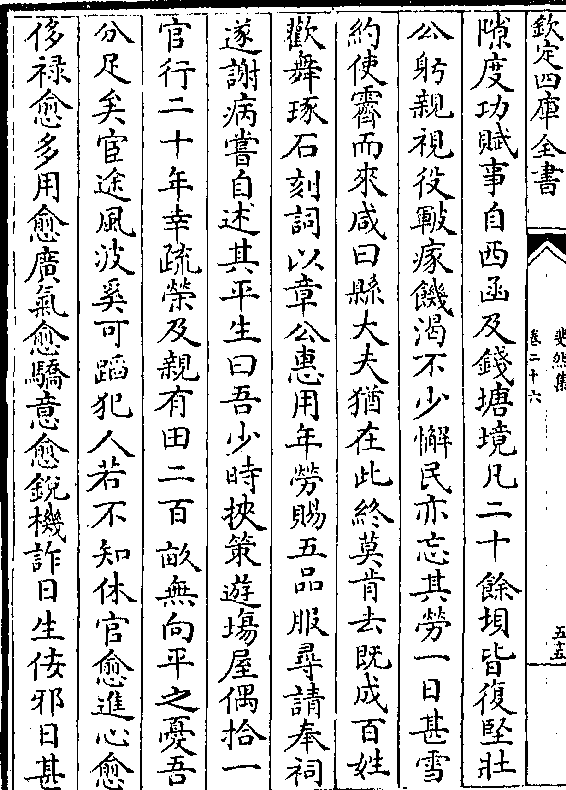 欽定四庫全書
斐然集
卷二十六
五五
隙度功賦事自西函及錢塘境凡二十餘埧皆復堅壯
公躬親視役皸瘃饑渇不少懈民亦忘其勞一日甚雪
約使霽而來咸曰縣大夫猶在此終莫肯去既成百姓
歡舞琢石刻詞以章公惠用年勞賜五品服尋請奉祠
遂謝病嘗自述其平生曰吾少時挾策遊塲屋偶拾一
官行二十年幸疏榮及親有田二百畝無向平之憂吾
分足矣宦途風波奚可蹈犯人若不知休官愈進心愈
侈祿愈多用愈廣氣愈驕意愈銳機詐日生佞邪日甚